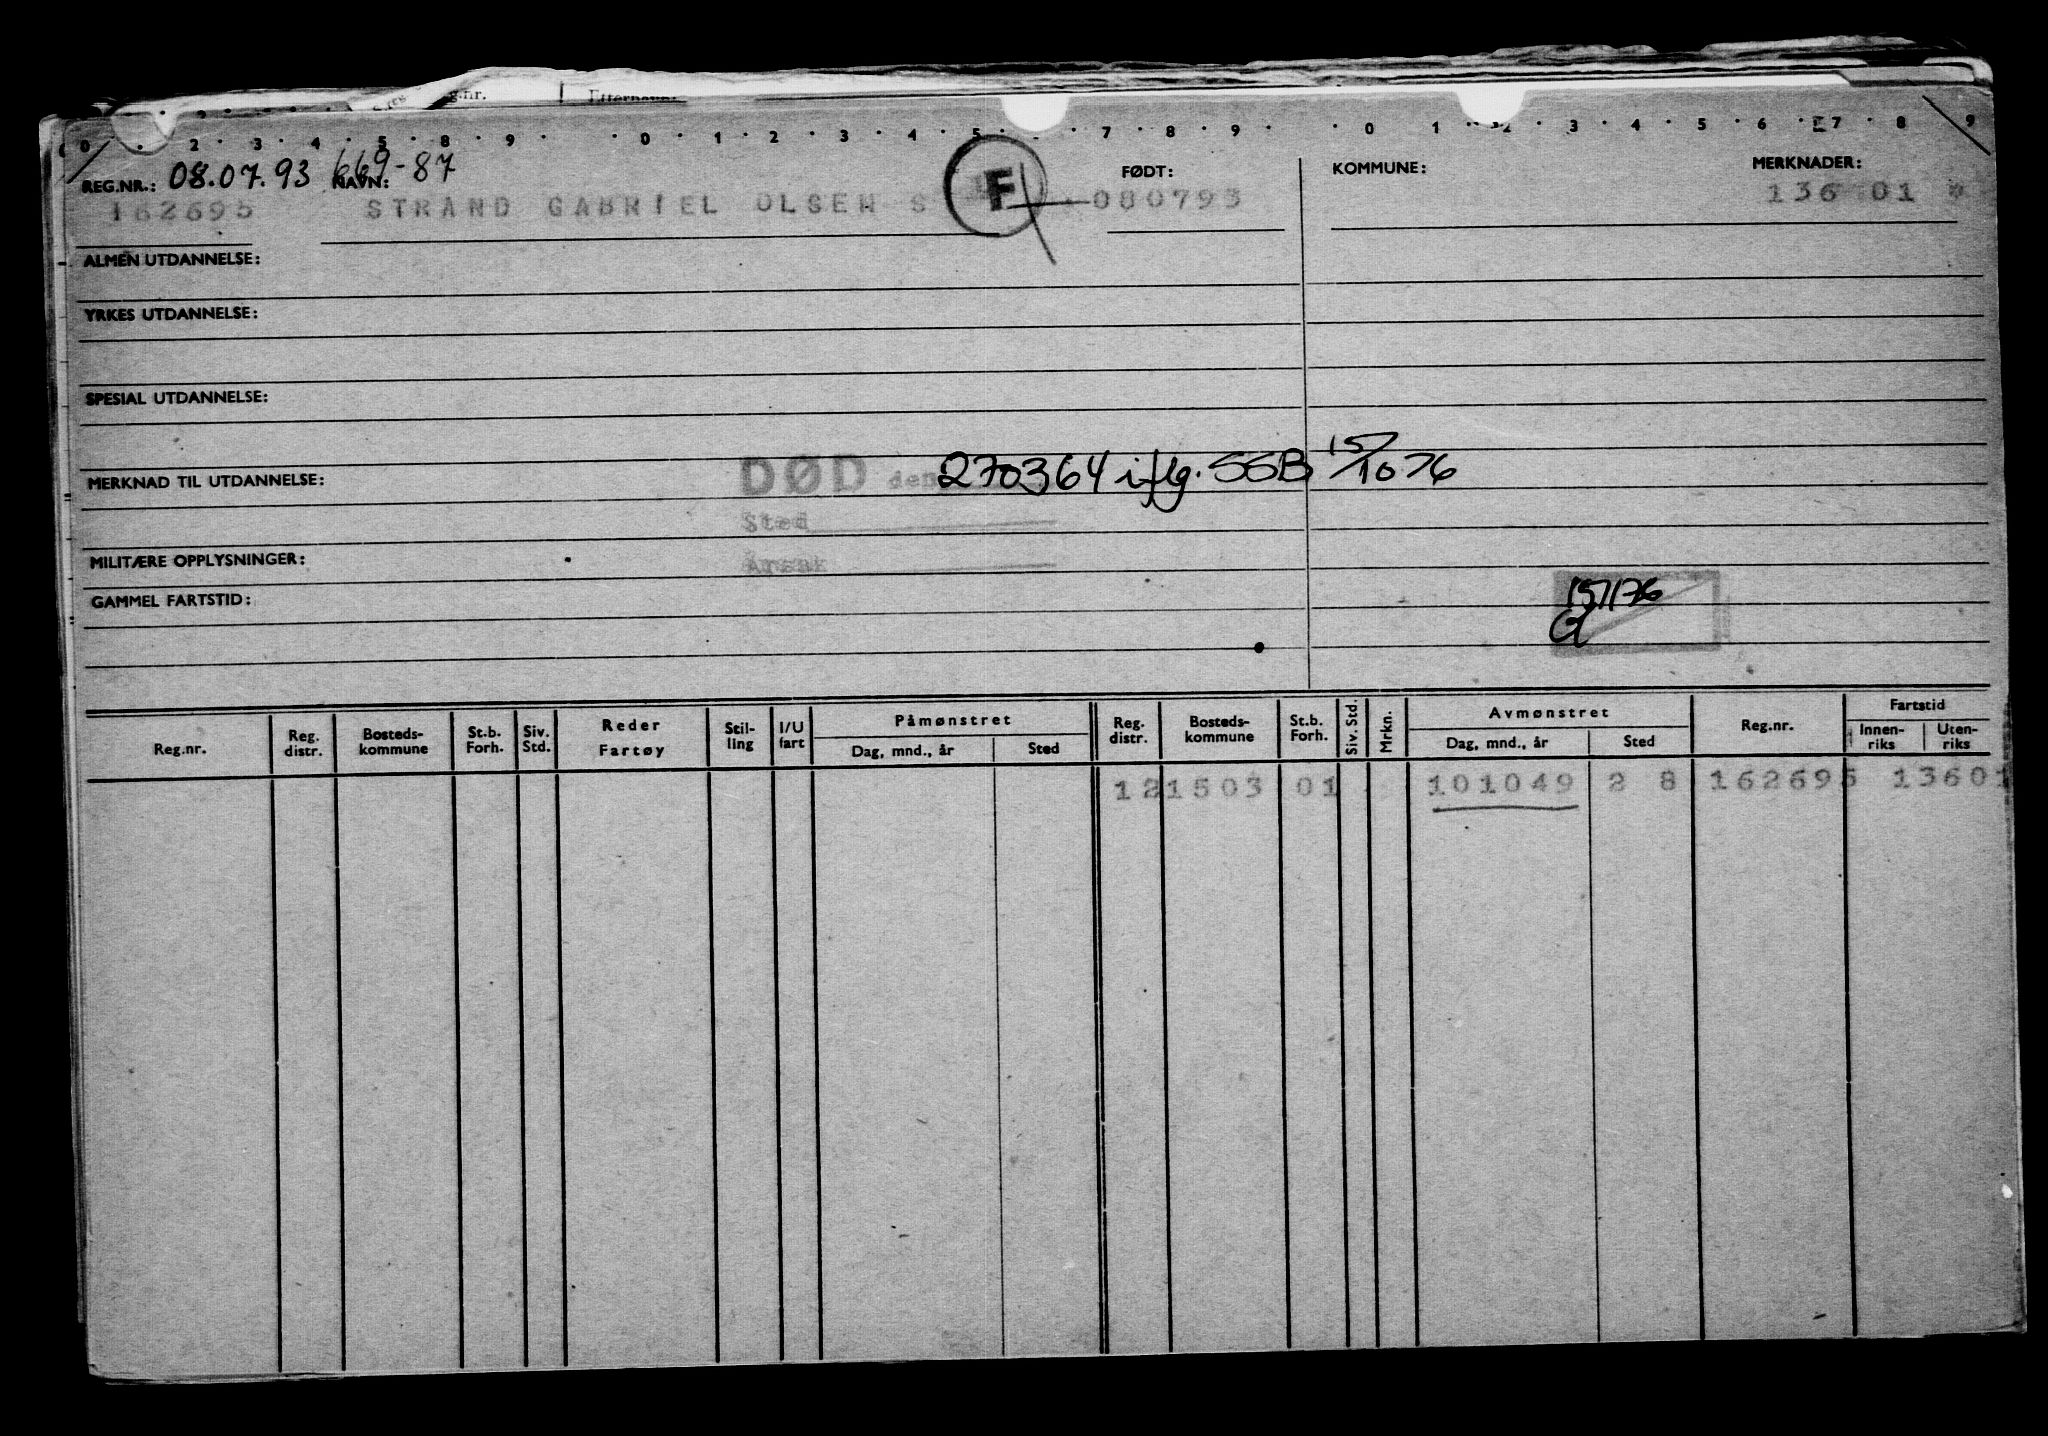 g.nr. Etternavn:
0 2 3 4 5 8 9 0 1 2 3 4 5 7 8 9 0 1 2 3 4 5 6 7 8 9
REG.NR.: 08.07.93 669-87 NAVN: FØDT: KOMMUNE: MERKNADER:
162695 STRAND GABRIEL OLSEN S F 080793 136 01
ALMEN UTDANNELSE:
YRKES UTDANNELSE:
SPESIAL UTDANNELSE:
MERKNAD TIL UTDANNELSE: DØD den 270364 iflg. SSB 15/10 76
Sted
MILITÆRE OPPLYSNINGER: Årsak
GAMMEL FARTSTID:
Reg.nr. Reg. distr. Bosteds-kommune St.b. Forh. Siv. Std. Reder Fartøy Stil-ling I/U fart Påmønstret Dag, mnd., år Sted Reg. distr. Bosteds-kommune St.b. Forh. Siv. Std. Mrkn. Avmønstret Dag, mnd., år Sted Reg.nr. Fartstid Innen-riks Uten-riks
12 1503 01 101049 2 8 162695 13601